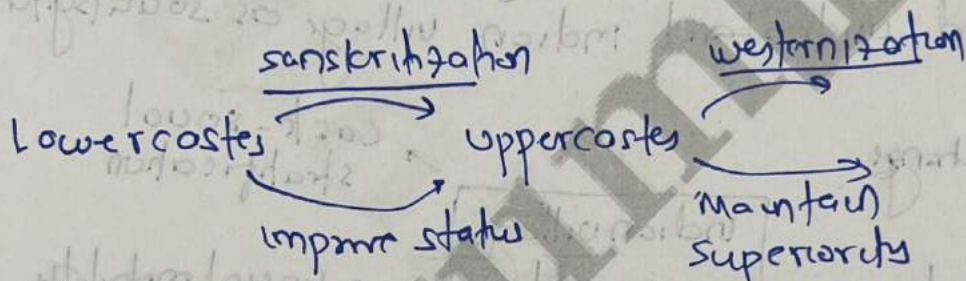 sanskritization westernization
Lowercastes uppercastes
improve status Maintain
superiority